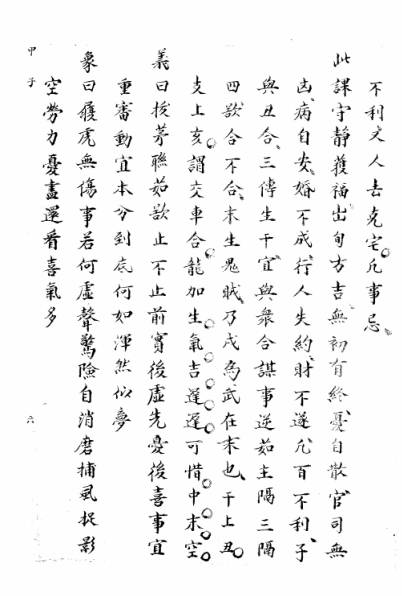 不利文人去克宅凡事忌
此課守靜獲福出旬方吉無初有終憂自散官司無
凶病自安婚不成行人失約財不遂凡百不利子
與丑合三傳生干宜與衆合謀事逆茹主隔三隔
四欲合不合末生鬼賊乃戌為武在末也干上丑
支上亥謂交車合龍加生氣吉遲遲可惜中末空
義曰拔茅聯茹欲止不止前實後虛先憂後喜事宜
重審動宜本分到底何如渾然似夢
象曰履虎無傷事若何虛聲驚險自消磨捕風捉影
空勞力憂盡還看喜氣多
甲子
六